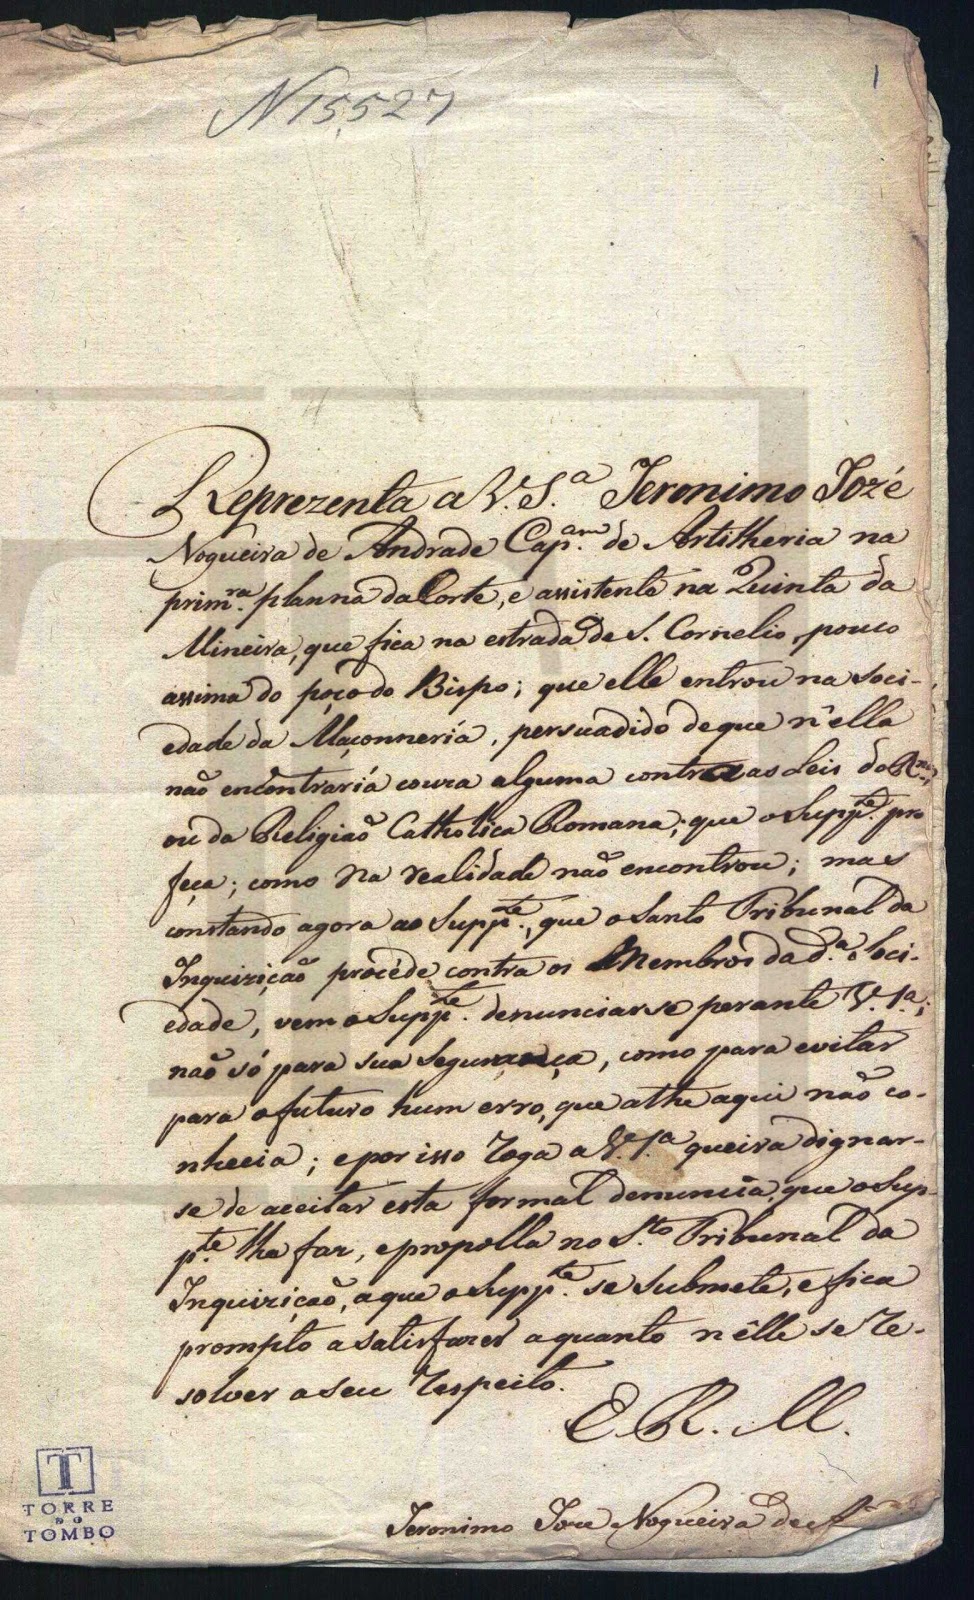 N 15,527
1
Reprezenta a V. S.ª Jeronimo Jozé
Nogueira de Andrade Cap.am de Artilheria na
prim.ra planna da Corte, e assistente na Quinta da
Mineira, que fica na estrada de S. Cornelio, pouco
assima do poço do Bispo; que elle entrou na Soci-
edade da Maçonneria, persuadido de que n'ella
não encontraria couza alguma contra as Leis do R.no,
ou da Religião Catholica Romana, que o Supp.te pro
feça; como na realidade não encontrou; mas
constando agora ao Supp.te, que o Santo Tribunal da
Inquizição procéde contra os Membros da d.ª Soci-
edade, vem o Supp.te denunciarse perante V. S.ª;
não só para sua segurança, como para evitar
para o futuro hum erro, que athe aqui não co-
nhecia; e por isso roga a V. S.ª queira dignar-
se de aceitar esta formal denuncia, que o Sup-
p.te lha faz, e propolla no S.to Tribunal da
Inquizição, a que o Supp.te se submete, e fica
prompto a satisfazer a quanto n'élle se re-
solver a seu respeito.
E. R. M.
Jeronimo Joze Nogueira de
T
TORRE
DO
TOMBO